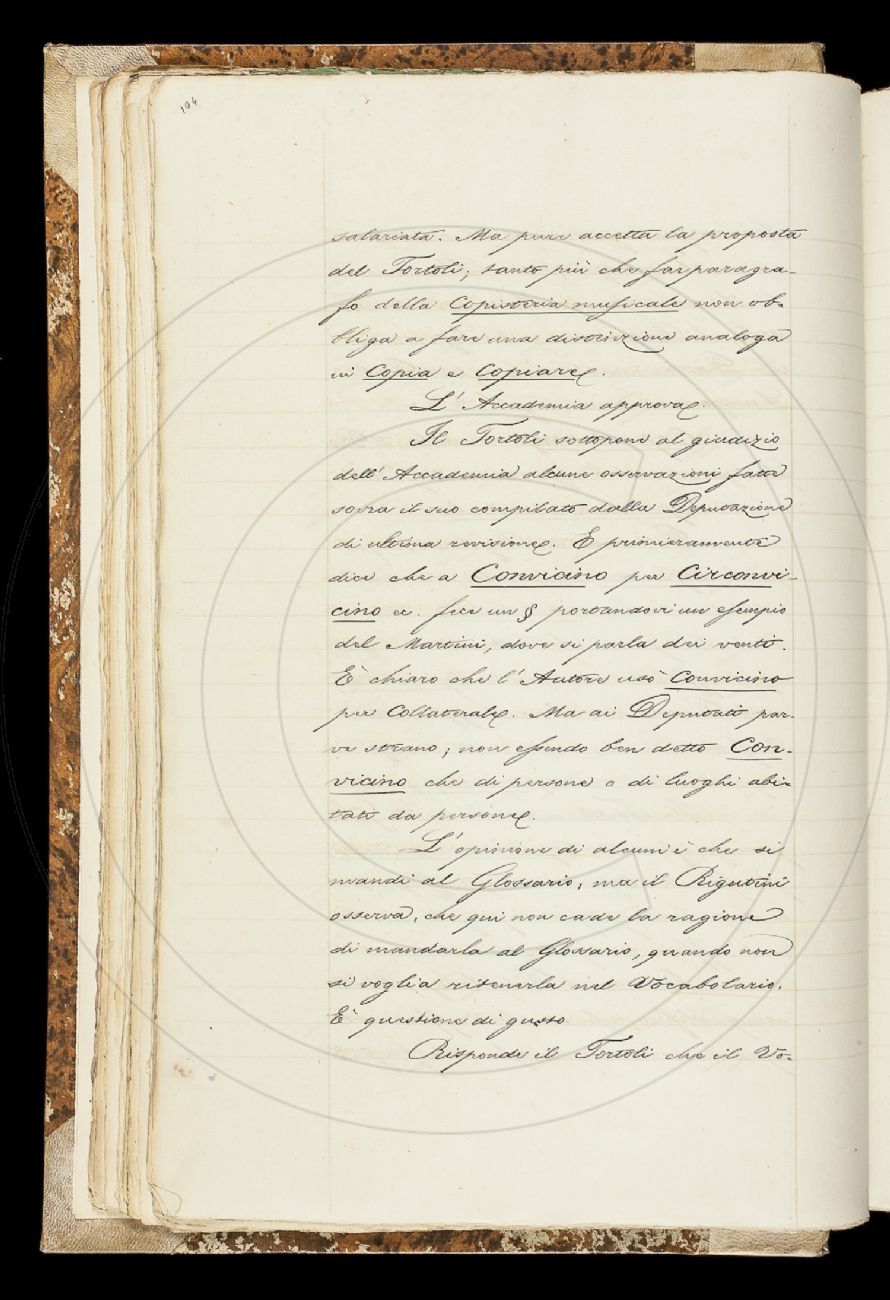 194
salariata. Ma pure accetta la proposta
del Tortoli; tanto più che far paragra-
fo della Copisteria musicale non ob-
bliga a fare una distinzione analoga
in Copia e Copiare.
L'Accademia approva.
Il Tortoli sottopone al giudizio
dell'Accademia alcune osservazioni fatte
sovra il suo compilato dalla Deputazione
di ultima revisione. E primieramente
dice che a Convicino per Circonvi-
cino ec. fece un § portandovi un esempio
del Martini, dove si parla dei venti.
È chiaro che l'Autore usò Convicino
per Collaterale. Ma ai Deputati par-
ve strano; non essendo ben detto Con-
vicino che di persone o di luoghi abi-
tati da persone.
L'opinione di alcuni è che si
mandi al Glossario; ma il Rigutini
osserva, che qui non cade la ragione
di mandarla al Glossario, quando non
si voglia ritenerla nel Vocabolario.
È questione di gusto.
Risponde il Tortoli che il Vo-